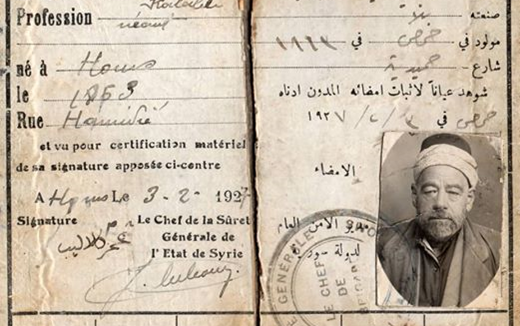 Profession
né à Homs
le 1863
Rue Hamidié
et vu pour certification matériel
de sa signature apposée ci-contre
A Homs Le 3-2-1927
Signature
Le Chef de la Sûret
Générale de
l'Etat de Syrie
صنعته
مولود في حمص في
شارع حميدية
شوهد عياناً لاثبات امضائه المدون ادناه
حمص في ١٩٢٧
الامضاء
الامن العام
لدولة سورية
GÉNÉRALE
LE CHEF
DE